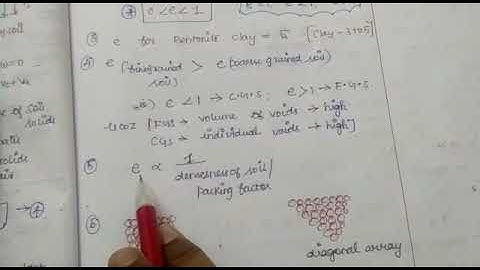 0 < e < 1
③ e for Bentonite clay = 5 [clay - 3 to 5]
④ e (fine grained soil) > e (coarse grained soil)
e < 1 → C.G.S ; e > 1 → F.G.S
[FGS → volume of voids → high
CGS → individual voids → high]
⑤ e ∝ 1
denseness of soil /
packing factor
⑥
diagonal array
e of soil
solids